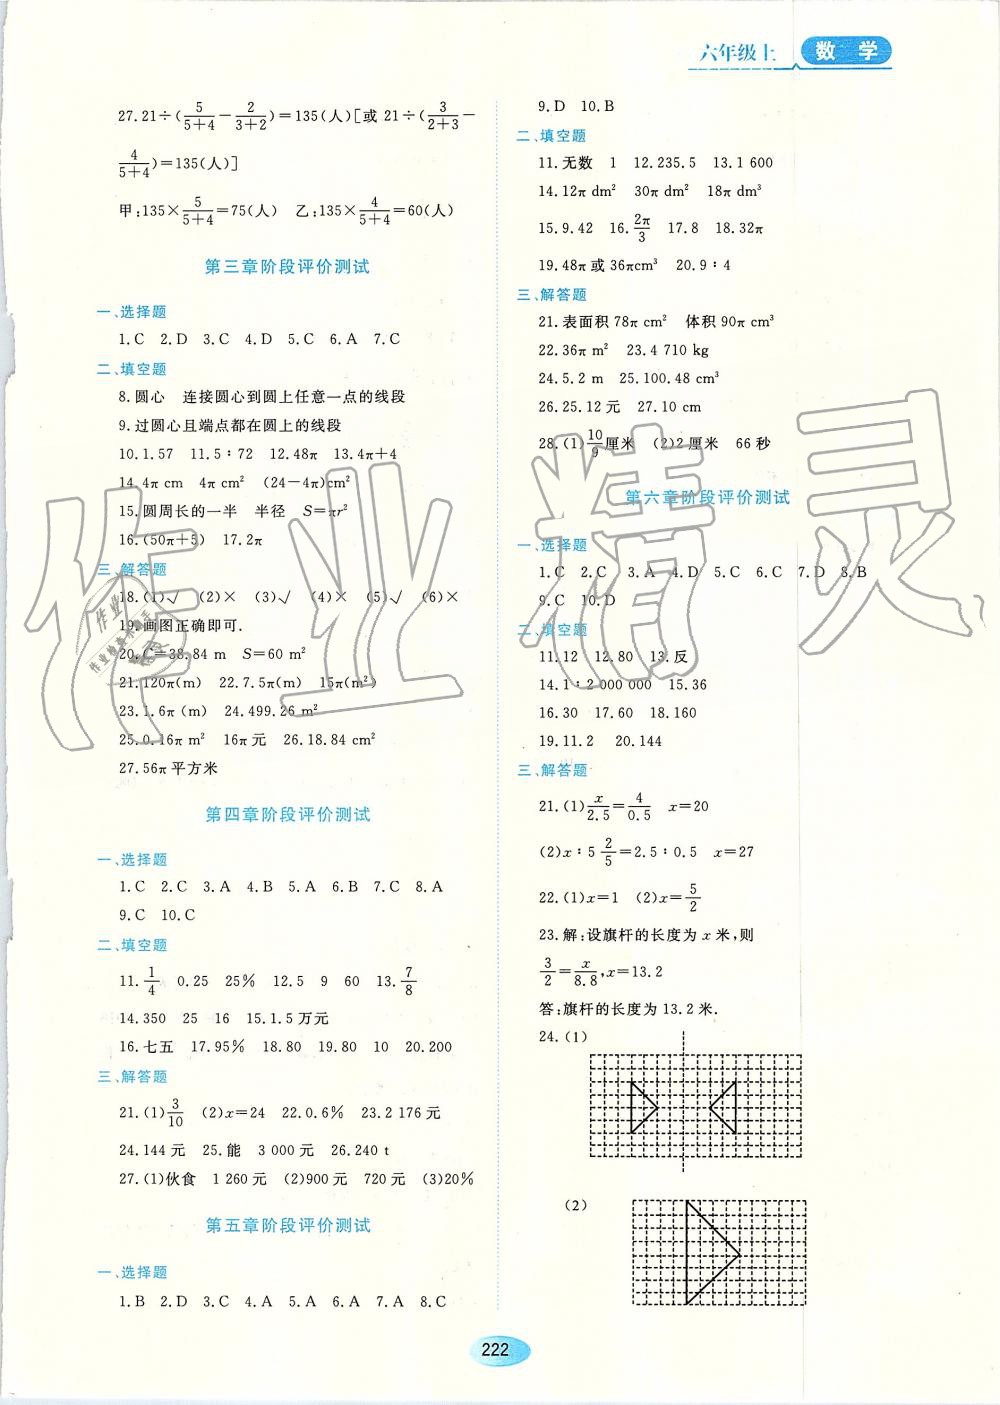 六年级上 数学
27.21÷(5/(5+4)-2/(3+2))=135(人)[或 21÷(3/(2+3)-
4/(5+4))=135(人)]
甲:135×5/(5+4)=75(人) 乙:135×4/(5+4)=60(人)
第三章阶段评价测试
一、选择题
1.C 2.D 3.C 4.D 5.C 6.A 7.C
二、填空题
8.圆心 连接圆心到圆上任意一点的线段
9.过圆心且端点都在圆上的线段
10.1.57 11.5∶72 12.48π 13.4π+4
14.4π cm 4π cm² (24-4π)cm²
15.圆周长的一半 半径 S=πr²
16.(50π+5) 17.2π
三、解答题
18.(1)√ (2)× (3)√ (4)× (5)√ (6)×
19.画图正确即可.
20.C=38.84 m S=60 m²
21.120π(m) 22.7.5π(m) 15π(m²)
23.1.6π(m) 24.499.26 m²
25.0.16π m² 16π元 26.18.84 cm²
27.56π平方米
第四章阶段评价测试
一、选择题
1.C 2.C 3.A 4.B 5.A 6.B 7.C 8.A
9.C 10.C
二、填空题
11.1/4 0.25 25% 12.5 9 60 13.7/8
14.350 25 16 15.1.5万元
16.七五 17.95% 18.80 19.80 10 20.200
三、解答题
21.(1)3/10 (2)x=24 22.0.6% 23.2 176元
24.144元 25.能 3 000元 26.240 t
27.(1)伙食 1 260元 (2)900元 720元 (3)20%
第五章阶段评价测试
一、选择题
1.B 2.D 3.C 4.A 5.A 6.A 7.A 8.C
9.D 10.B
二、填空题
11.无数 1 12.235.5 13.1 600
14.12π dm² 30π dm² 18π dm³
15.9.42 16.2π/3 17.8 18.32π
19.48π或36πcm³ 20.9∶4
三、解答题
21.表面积78π cm² 体积90π cm³
22.36π m² 23.4 710 kg
24.5.2 m 25.100.48 cm³
26.25.12元 27.10 cm
28.(1)10/9厘米 (2)2厘米 66秒
第六章阶段评价测试
一、选择题
1.C 2.C 3.A 4.D 5.C 6.C 7.D 8.B
9.C 10.D
二、填空题
11.12 12.80 13.反
14.1∶2 000 000 15.36
16.30 17.60 18.160
19.11.2 20.144
三、解答题
21.(1)x/2.5=4/0.5 x=20
(2)x∶5 2/5=2.5∶0.5 x=27
22.(1)x=1 (2)x=5/2
23.解:设旗杆的长度为 x 米,则
3/2=x/8.8,x=13.2
答:旗杆的长度为13.2米.
24.(1)
(2)
222
作业精灵